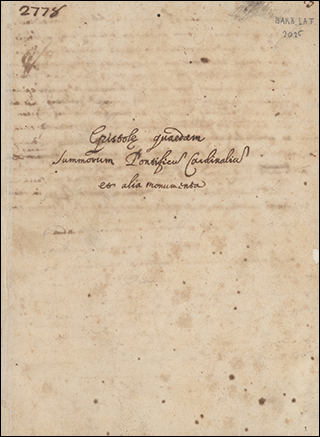 2778
BARB. LAT.
2025
Epistolę quaedam
summorum Pontificũ Cardinaliũ
et alia monumenta